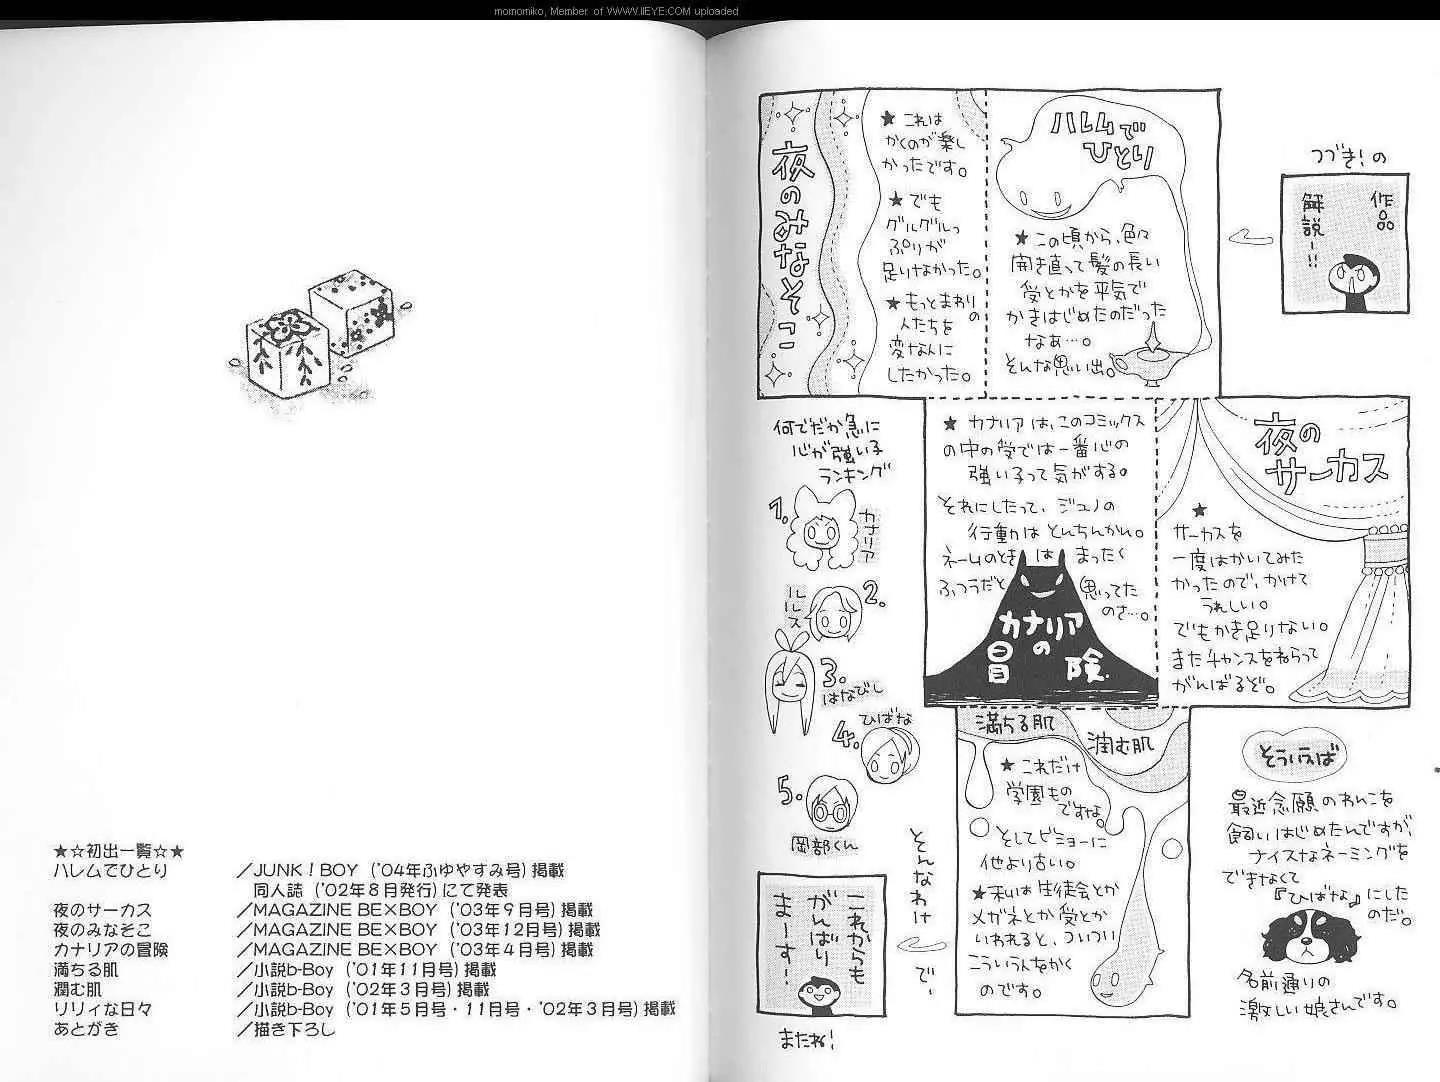 momomiko, Member of WWW.IIEYE.COM uploaded
つづき!の
作品
解説ー!!
ハレムで
ひとり
★この頃から、色々
開き直って髪の長い
受とかを平気で
かきはじめたのだった
なぁ…。
そんな思い出。
夜のみなそこ
★これは
かくのが楽し
かったです。
★でも
グルグルっ
ぷりが
足りなかった。
★もっとまわりの
人たちを
変な人に
したかった。
夜の
サーカス
★
サーカスを
一度はかいてみた
かったので、かけて
うれしい。
でもかき足りない。
またチャンスをねらって
がんばるぞ。
★カナリアは、このコミックス
の中の受では一番心の
強い子って気がする。
それにしたって、ジュノの
行動はとんちんかん。
ネームのときはまったく
ふつうだと思ってた
のさ…。
カナリア
の
冒険
何でだか急に
心が強い子
ランキング
1.
カナリア
2.
ルルス
3.
はなびし
4.
ひばな
5.
岡部くん
満ちる肌
潤む肌
★これだけ
学園もの
ですな。
そしてビミョーに
他より古い。
★私は生徒会とか
メガネとか受とか
いわれると、ついつい
こういう人をかく
のです。
そういえば
最近念願のわんこを
飼いはじめたんですが、
ナイスなネーミングを
できなくて
『ひばな』にした
のだ。
名前通りの
激しい娘さんです。
とんなわけ
で、
これからも
がんばり
まーす!
またね!
★☆初出一覧☆★
ハレムでひとり ／JUNK！BOY（'04年ふゆやすみ号）掲載
同人誌（'02年８月発行）にて発表
夜のサーカス ／MAGAZINE BE×BOY（'03年９月号）掲載
夜のみなそこ ／MAGAZINE BE×BOY（'03年12月号）掲載
カナリアの冒険 ／MAGAZINE BE×BOY（'03年４月号）掲載
満ちる肌 ／小説b-Boy（'01年11月号）掲載
潤む肌 ／小説b-Boy（'02年３月号）掲載
リリィな日々 ／小説b-Boy（'01年５月号・11月号・'02年３月号）掲載
あとがき ／描き下ろし